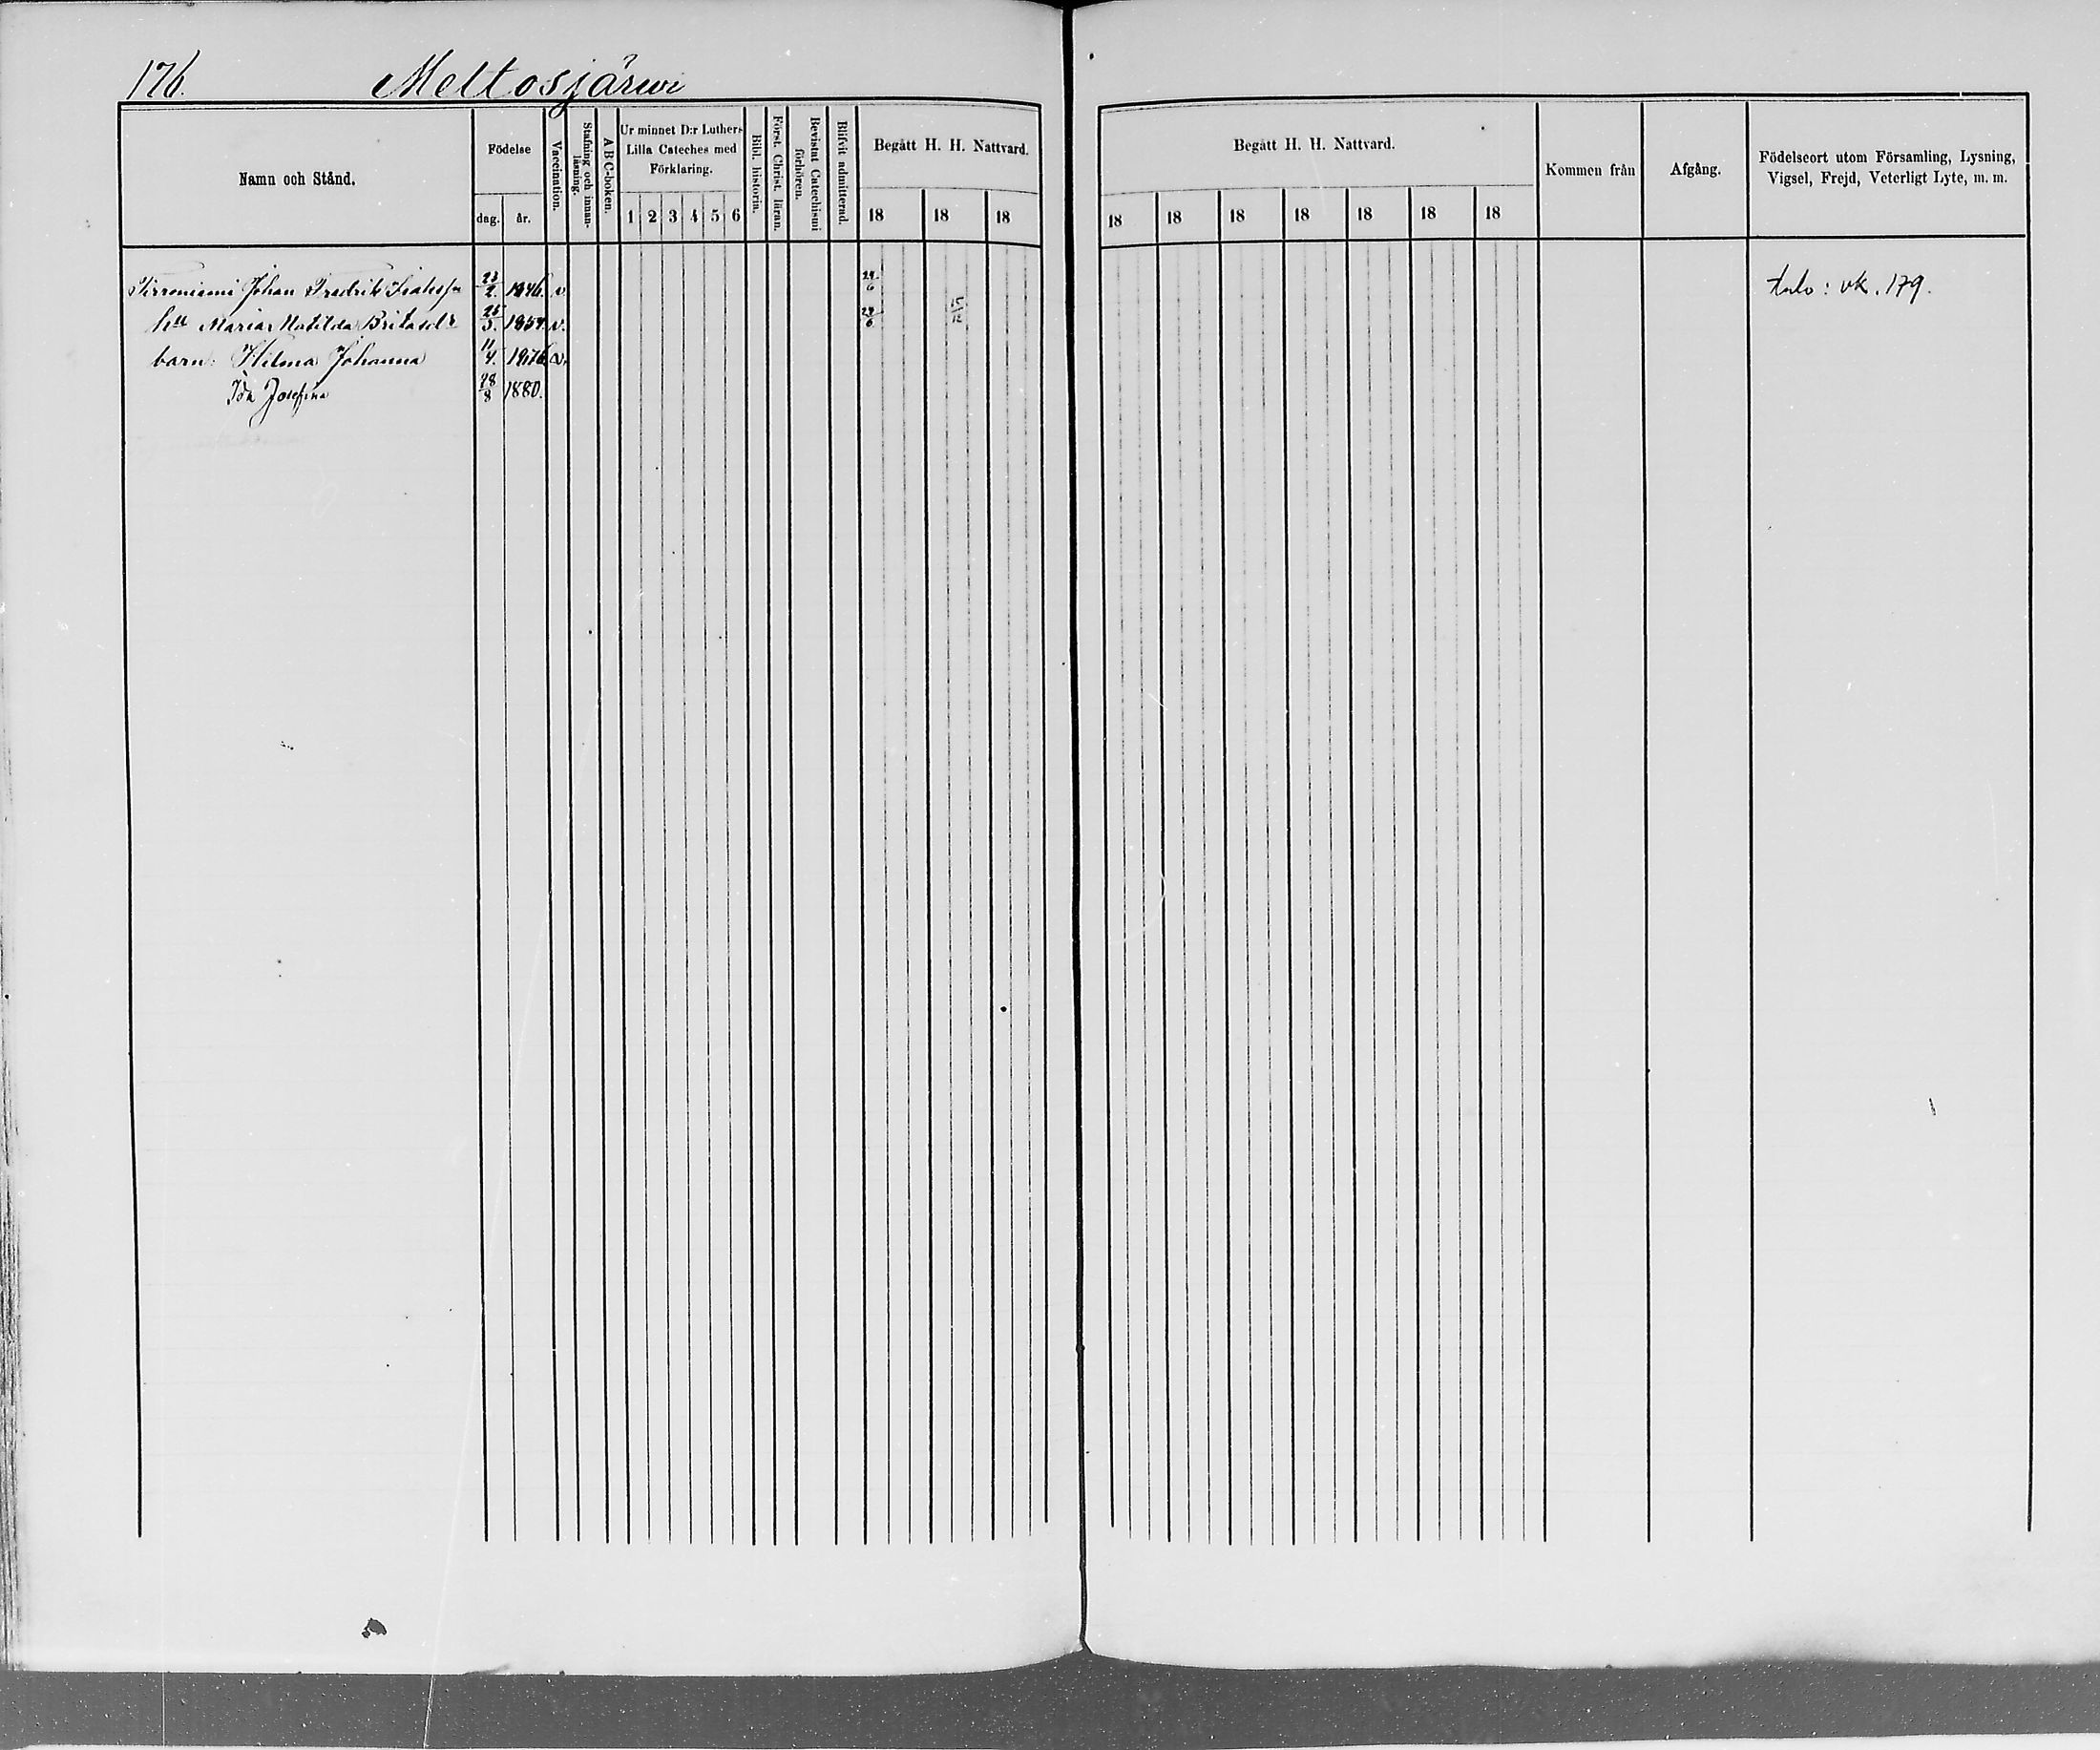 176.
Meltosjärwi
Namn och Stånd.
Födelse
dag. år.
Vaccination.
Stafning och innan-
läsning.
ABC-boken.
Ur minnet D:r Luthers
Lilla Cateches med
Förklaring.
1 2 3 4 5 6
Bibl. historia.
Först. Christ. läran.
Bevistat Catechismi
förhören.
Blifvit admitterad.
Begått H. H. Nattvard.
18 18 18
Johan Fredrik 23/2. 1846. v. 24/6
hu Maria Matilda 1854. v. 24/6 15/12
barn: Hilma Johanna 11/4. 1876 v.
Ida Josefina 28/8 1880.
Begått H. H. Nattvard.
18 18 18 18 18 18 18
Kommen från
Afgång.
Födelseort utom Församling, Lysning,
Vigsel, Frejd, Veterligt Lyte, m. m.
talo: vk. 179.